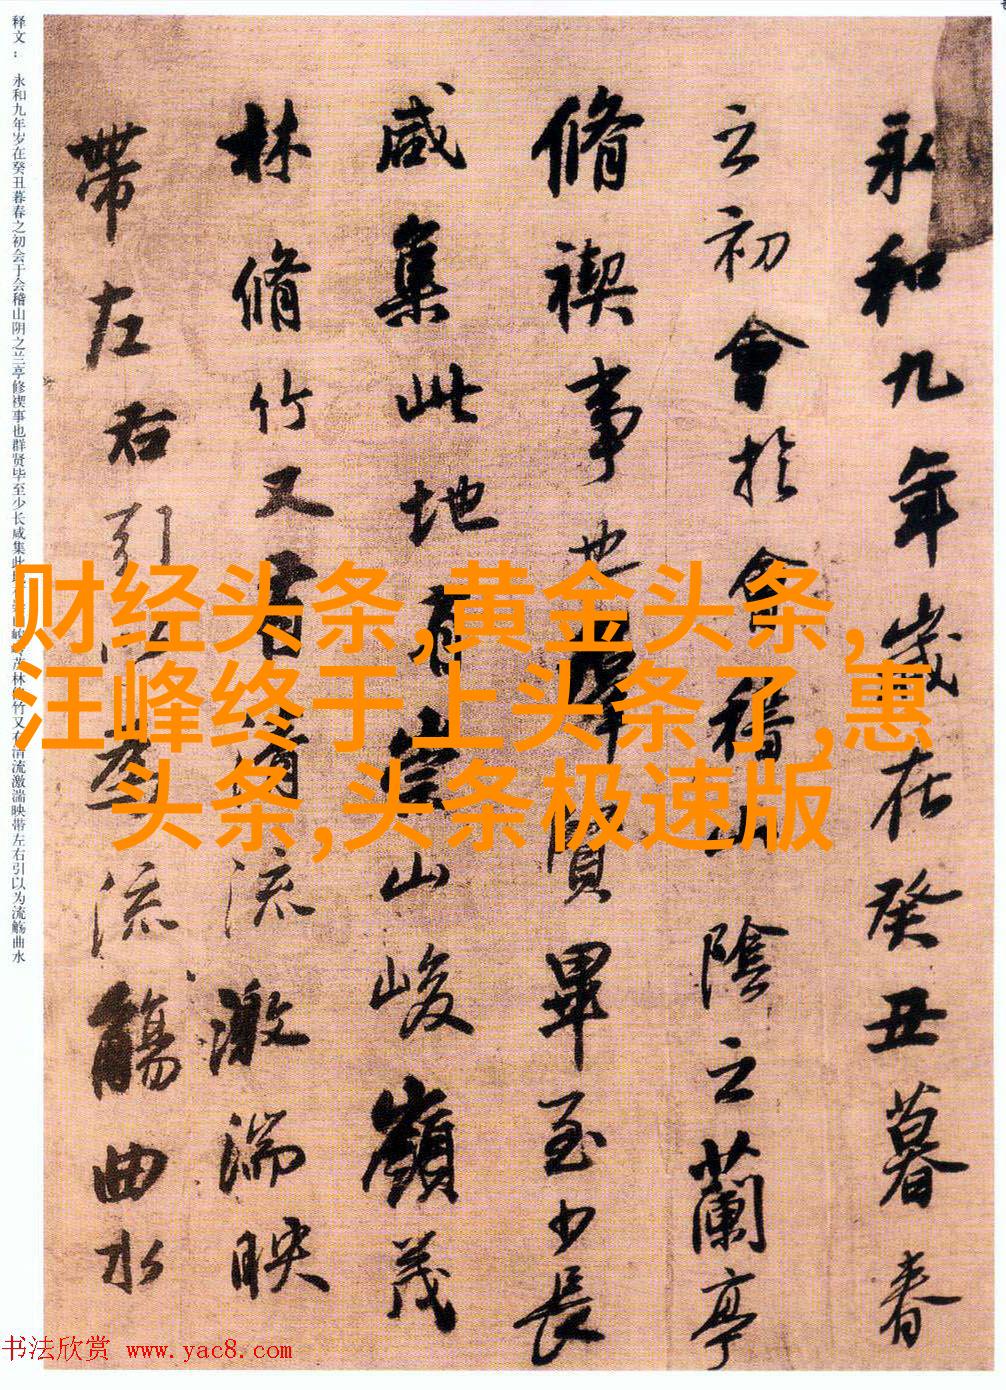 永和九年歲在癸丑暮春
之初會於會稽山陰之蘭亭
脩禊事也羣賢畢至少長
咸集此地有崇山峻嶺茂
林脩竹又有清流激湍映
帶左右引以為流觴曲水
释文：永和九年岁在癸丑暮春之初会于会稽山阴之兰亭修禊事也群贤毕至少长咸集此 茂林 竹又 清流激湍映带左右引以为流觞曲水
财经头条,黄金头条,
汪峰终于上头条了,惠
头条,头条极速版
书法欣赏 www.yac8.com